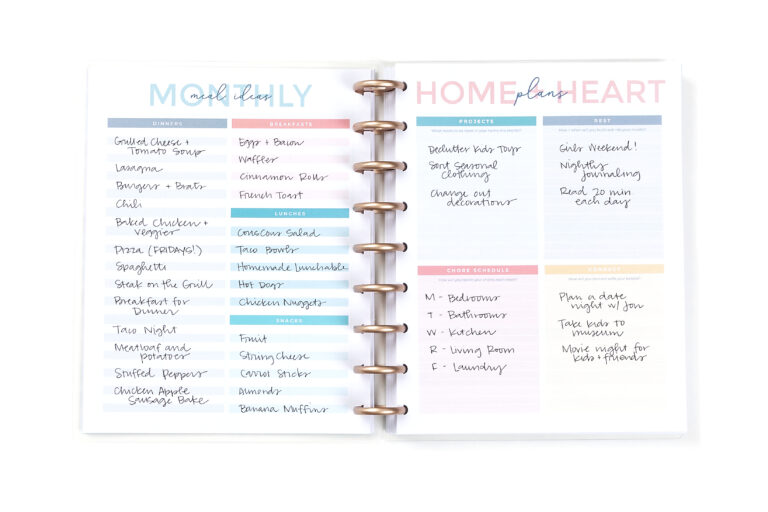 MONTHLY
meal ideas
DINNERS
Grilled Cheese +
Tomato Soup
Lasagna
Burgers + Brats
Chili
Baked Chicken +
veggies
Pizza (FRIDAYS!)
Spaghetti
Steak on the Grill
Breakfast for
Dinner
Taco Night
Meatloaf and
potatoes
Stuffed Peppers
Chicken Apple
Sausage Bake
BREAKFASTS
Eggs + Bacon
Waffles
Cinnamon Rolls
French Toast
LUNCHES
Couscous Salad
Taco Bowls
Homemade Lunchable
Hot Dogs
Chicken Nuggets
SNACKS
Fruit
String Cheese
Carrot Sticks
Almonds
Banana Muffins
HOME + HEART
plans
PROJECTS
Declutter Kids Toys
Sort Seasonal
Clothing
Change out
decorations
REST
Girls Weekend!
Nightly
journaling
Read 20 min
each day
CHORE SCHEDULE
M - Bedrooms
T - Bathrooms
W - Kitchen
R - Living Room
F - Laundry
CONNECT
Plan a date
night w/ Jon
Take kids to
museum
Movie night for
kids + friends